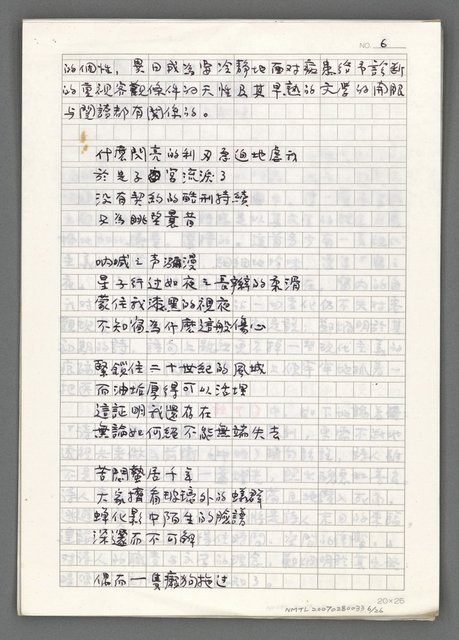 NO. 6
的個性,異日成為當冷靜地面对病患給予診断
的重視客觀條件的天性且其早熟的文學的南服
与閱讀都有関係的。
什麼閃亮的利刃急迫地虛示
於是子宮流淚了
没有契約的酷刑持續
只為眺望曩昔
吶喊之声瀰漫
星子行过如夜之長辮的柔滑
蒙住我漆黑的視夜
不知宿為什麼這般傷心
緊鎖住二十世紀的風城
而油垢厚得可以活埋
這証明我還存在
無論如何絕不能無端失去
苦悶蟄居千年
大家擠看玻璃外的蟻群
蟬化影中陌生的臉譜
深邃而不可解
偶而一隻癩狗拖过
20×25
NMTL20070280033 6/26